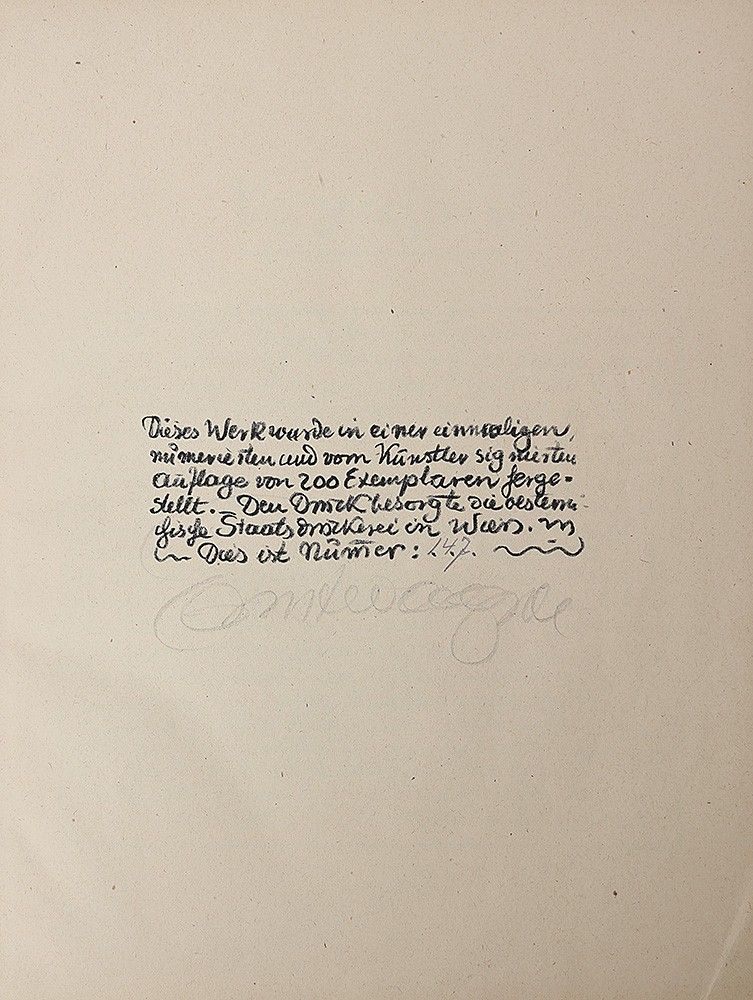 Dieses Werk wurde in einer einmaligen,
numerierten und vom Künstler signierten
Auflage von 200 Exemplaren ferge-
stellt. – Den Druck besorgte die oesterrei-
chische Staatsdruckerei in Wien.
Dies ist Numer: 147.